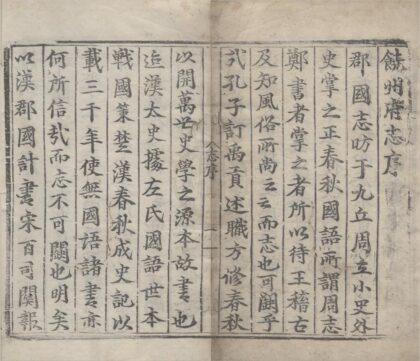 饒州府志序
郡國志昉于九丘周立小史外
史掌之正春秋國語所謂周志
鄭書者掌之者所以待王稽古
及知風俗所尚云云而志也可闕乎
弐孔子訂禹貢述職方修春秋
以開萬世史學之源本故書也
迨漢太史據左氏國語世本
戰國策楚漢春秋成史記以
載三千年使無國語諸書亦
何所信哉而志不可闕也明矣
以漢郡國計書宋百司關報
志序
一